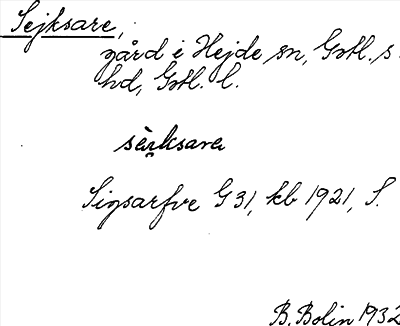 Sejksare,
gård i Hejde sn, Gotl. s.
hd, Gotl. l.
Sigsarfve G 31, kb 1921, S.
B. Bolin 1932